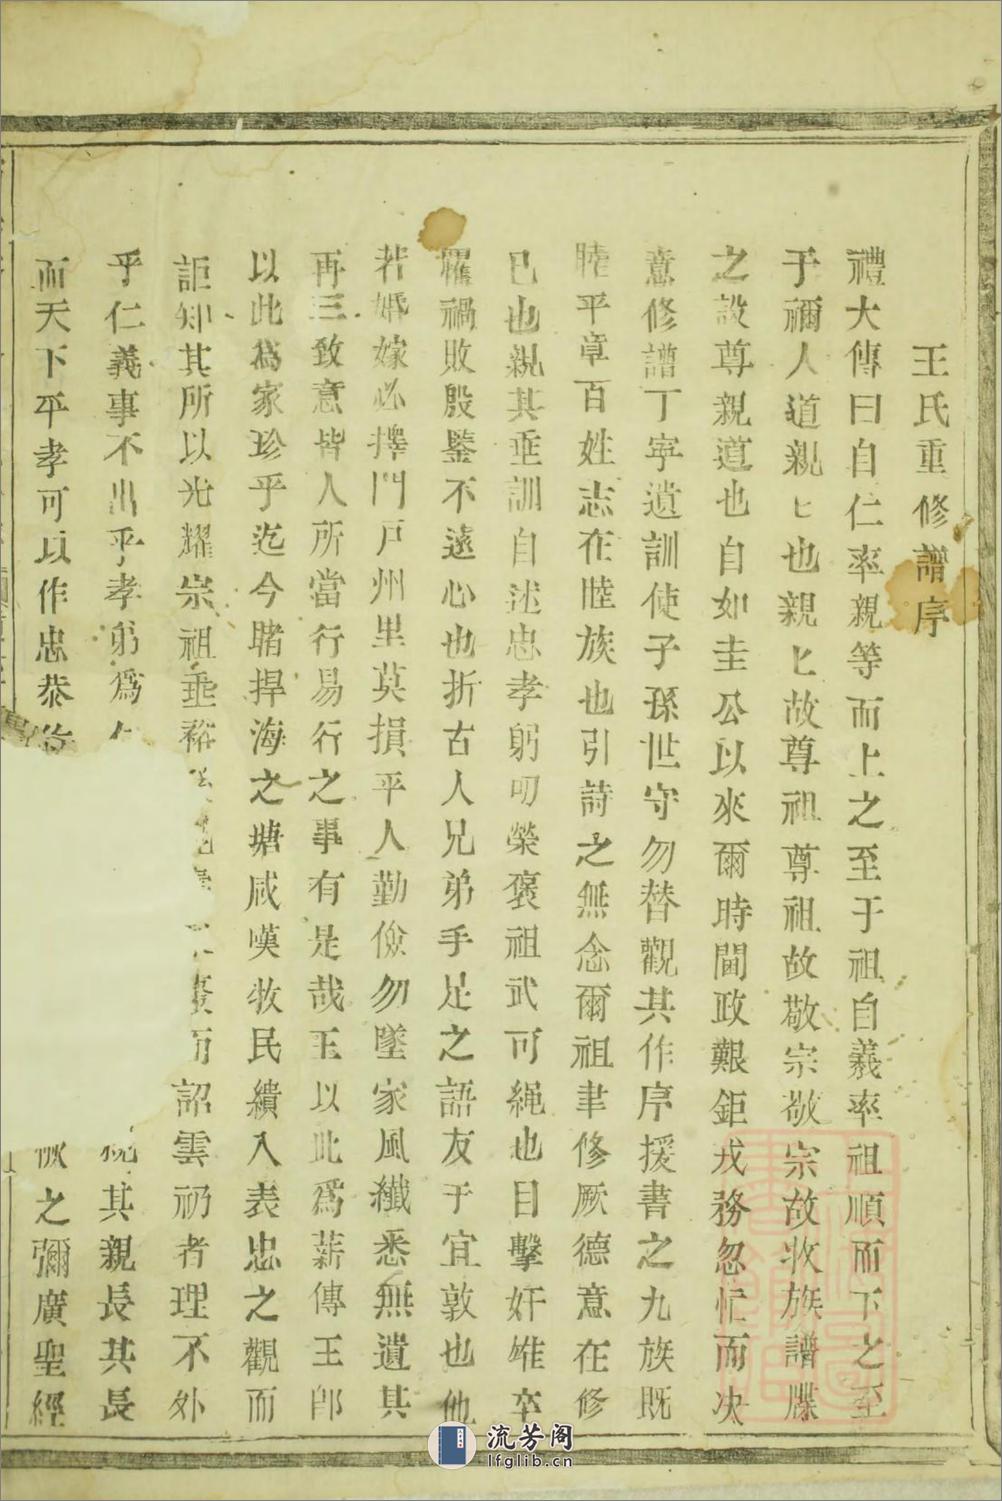 王氏重修譜序
禮大傳曰自仁率親等而上之至于祖自義率祖順而下之至
于禰人道親匕也親匕故尊祖尊祖故敬宗敬宗故收族譜牒
之設尊親道也自如圭公以來爾時閫政艱鉅戎務忽忙而决
意修譜丁寧遺訓使子孫世守勿替觀其作序援書之九族既
睦平章百姓志在睦族也引詩之無念爾祖聿修厥德意在修
已也親其垂訓自述忠孝躬叨榮褒祖武可繩也目擊奸雄卒
罹禍敗殷鑒不遠心也折古人兄弟手足之語友于宜敦也他
若婚嫁必擇門戶州里莫損平人勤儉勿墜家風纖悉無遺其
再三致意皆人所當行易行之事有是哉王以此爲薪傳王郎
以此爲家珍乎迄今睹捍海之塘咸嘆牧民纘入表忠之觀而
詎知其所以光耀宗祖垂裕而詔雲礽者理不外
乎仁義事不出乎孝弟爲其親長其長
而天下平孝可以作忠恭之彌廣聖經
流芳阁
lfglib.cn